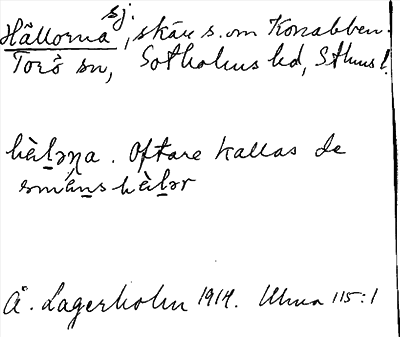 sj.
Hållorna, skär s. om Konabben.
Torö sn, Sotholms hd, Sthms l.
hàḷəṇa. Oftare kallas de
smáṉs hàḷər
Å. Lagerholm 1914. Uhma 115:1